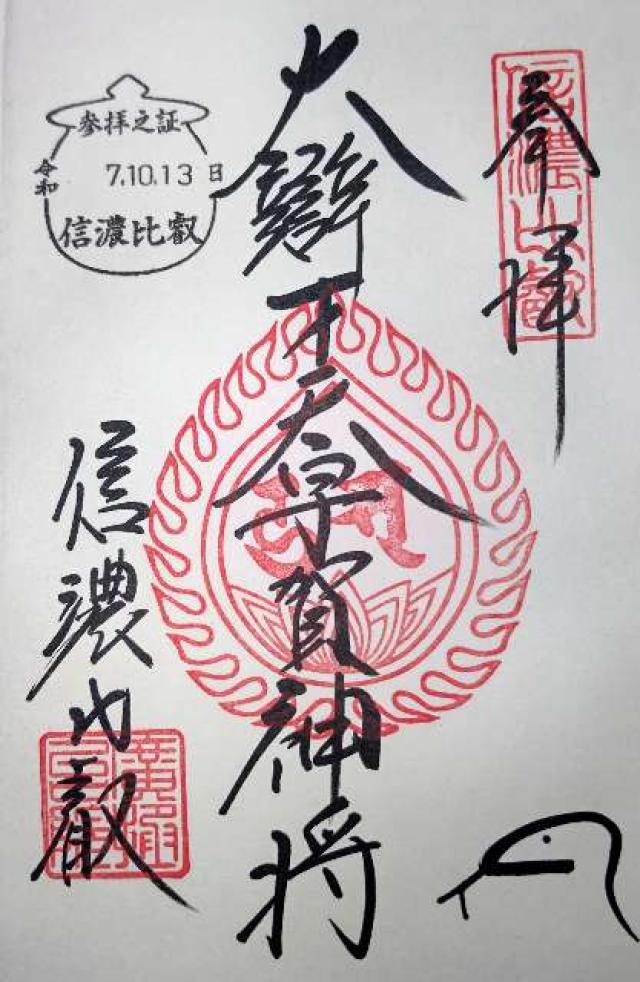 奉拝
信濃比叡
大辯才天宇賀神将
參拝之証
令和 7.10.13 日
信濃比叡
信濃比叡